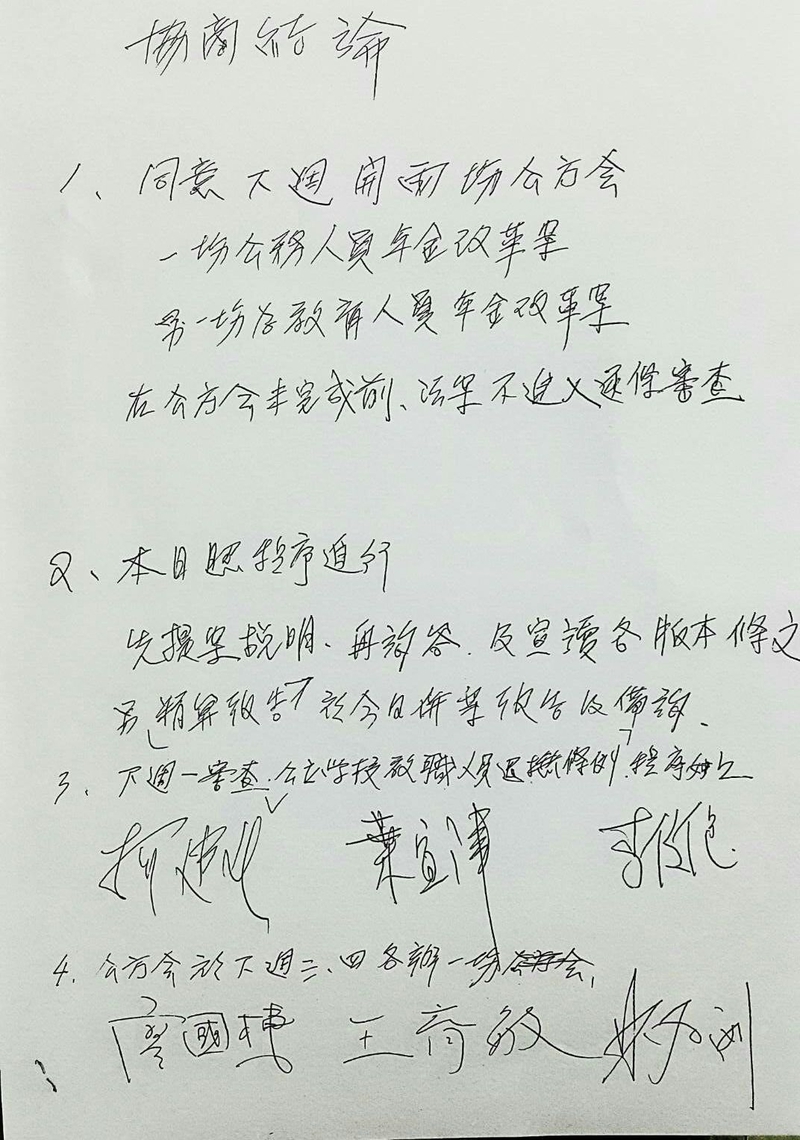 協商結論
1、同意下週開兩場公方会
一場公務人員年金改革案
另一場為教育人員年金改革案
在公方会未完成前、法案不進入逐條審查
2、本日照程序進行
先提案說明、再詢答、及宣讀各版本條文
另精算報告於今日併案報告及備詢、
3、下週一審查、公立學校教職人員退撫條例、程序如上
柯建
葉宜津
李俊俋
4、公方会於下週三、四各辦一場
廖國棟 王育敏